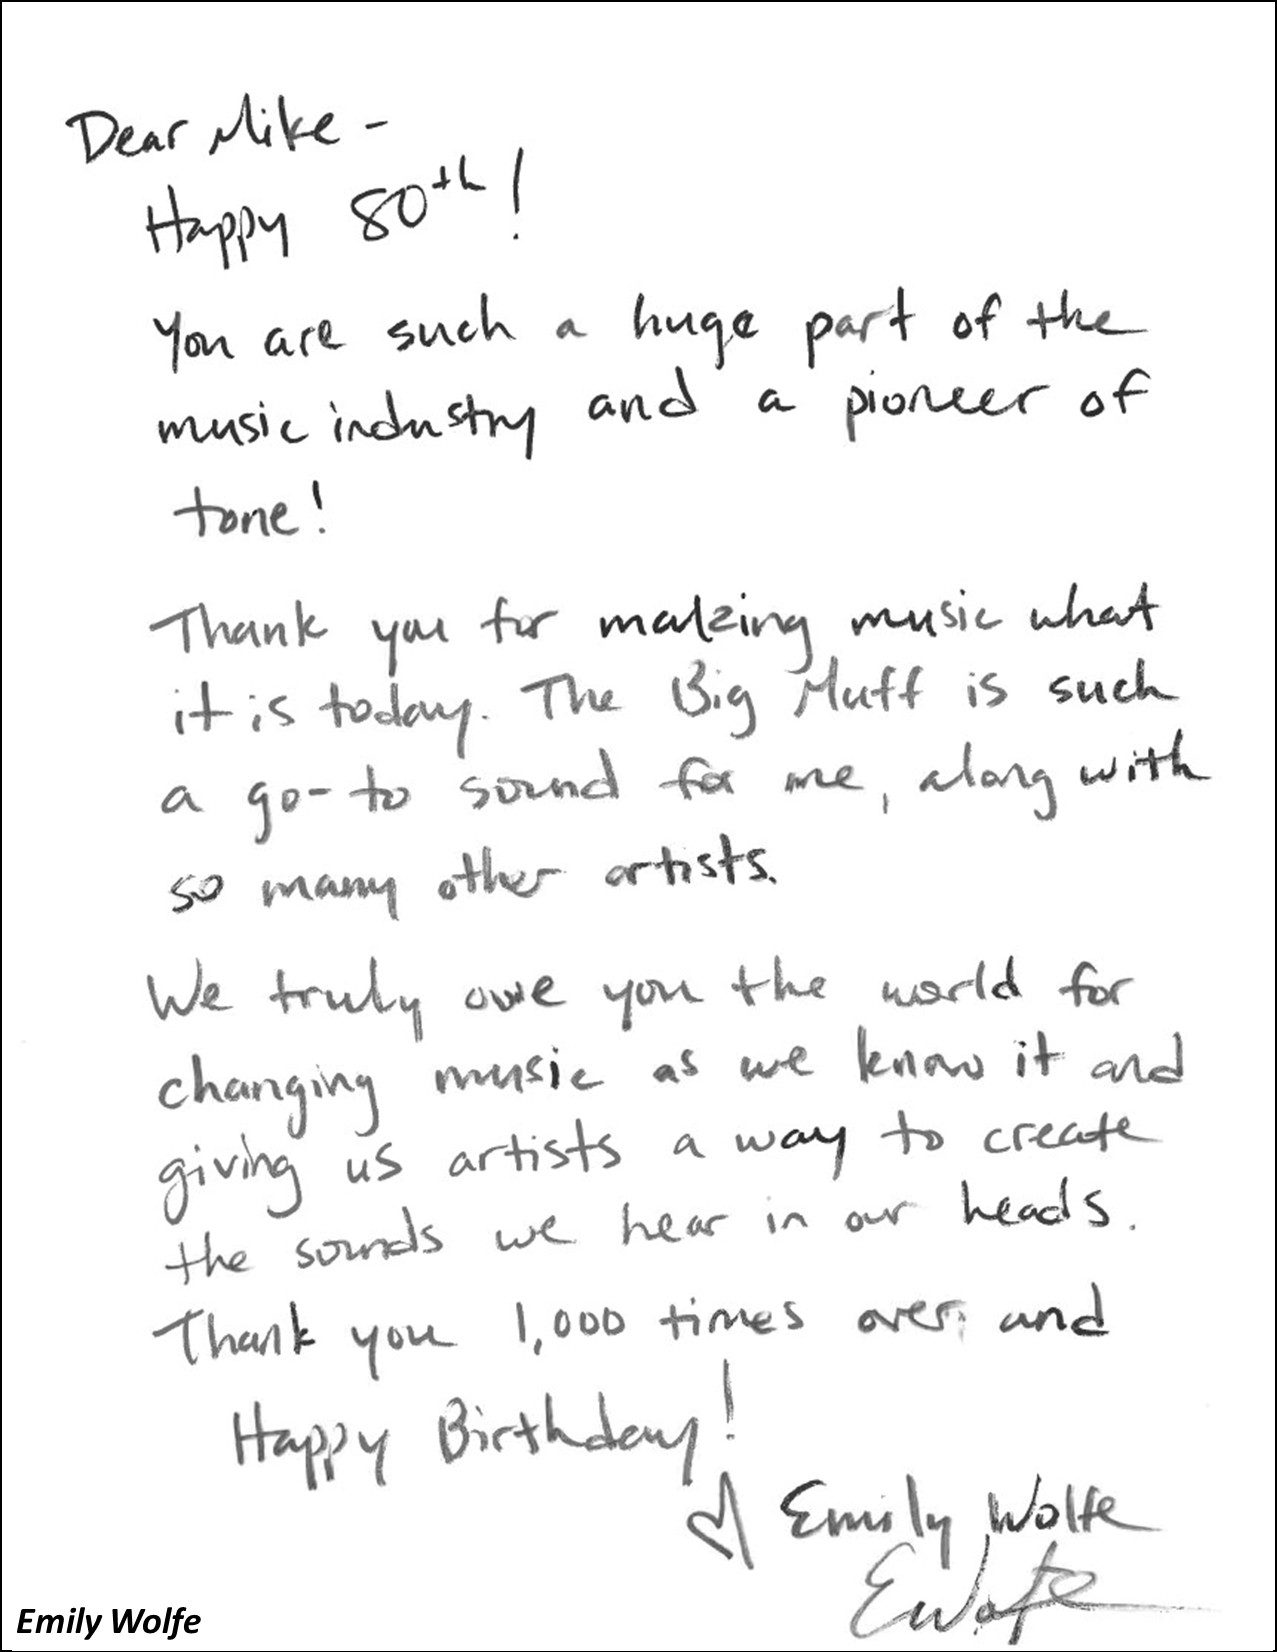 Dear Mike -
Happy 80th!
You are such a huge part of the
music industry and a pioneer of
tone!
Thank you for making music what
it is today. The Big Muff is such
a go-to sound for me, along with
so many other artists.
We truly owe you the world for
changing music as we know it and
giving us artists a way to create
the sounds we hear in our heads.
Thank you 1,000 times over and
Happy Birthday!
♡ Emily Wolfe
EWolfe
Emily Wolfe